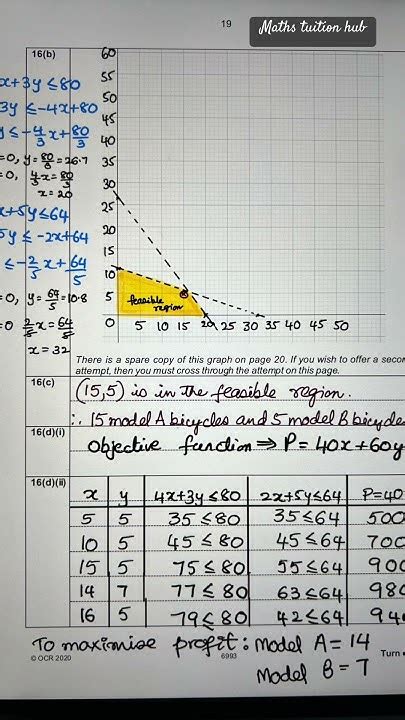 19
Maths tuition hub
16(b)
x+3y ≤80
3y ≤-4x+80
≤ -4/3 x + 80/3
=0, y = 80/3 = 26.7
=0, 4/3 x = 80/3
x = 20
x+5y ≤64
5y ≤ -2x+64
≤ -2/5 x + 64/5
=0, y = 64/5 = 10.8
=0 2/5 x = 64/5
x = 32
60
55
50
45
40
35
30
25
20
15
10
5
0 5 10 15 20 25 30 35 40 45 50
feasible region
There is a spare copy of this graph on page 20. If you wish to offer a secon
attempt, then you must cross through the attempt on this page.
16(c)
(15,5) is in the feasible region.
∴ 15 model A bicycles and 5 model B bicycle
16(d)(i)
Objective function ⇒ P = 40x+60y
16(d)(ii)
x y 4x+3y ≤80 2x+5y ≤64 P=40
5 5 35 ≤80 35 ≤64 500
10 5 45 ≤80 45 ≤64 700
15 5 75 ≤80 55 ≤64 900
14 7 77 ≤80 63 ≤64 980
16 5 79 ≤80 42 ≤64 940
To maximise profit : Model A = 14
Model B = 7
© OCR 2020
6993
Turn